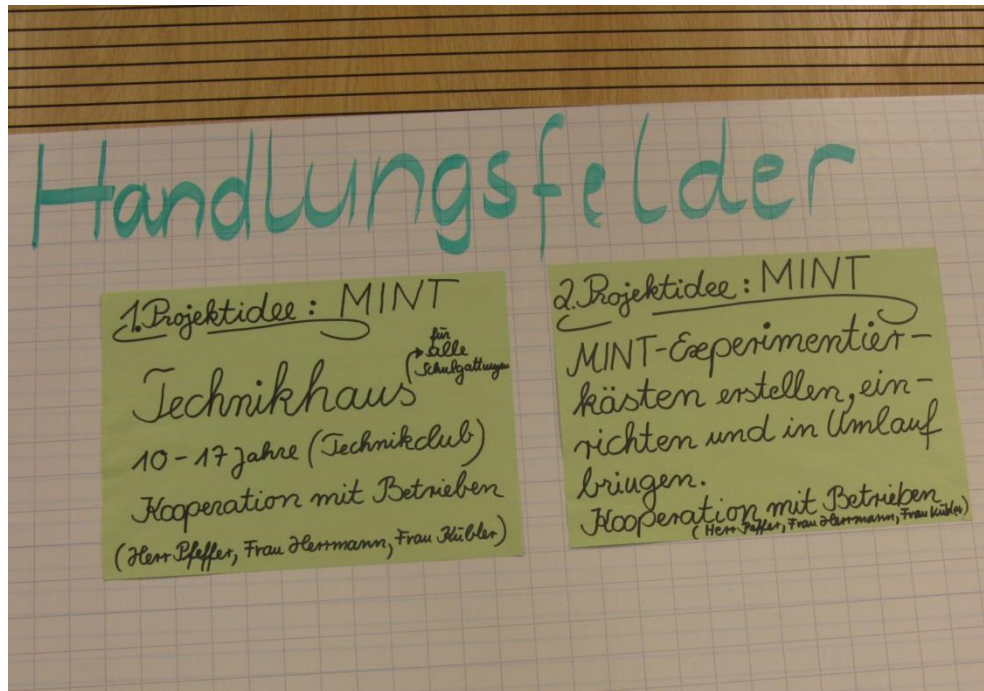 Handlungsfelder
1. Projektidee: MINT
für
alle
Schulgattungen
Technikhaus
10-17 Jahre (Technikclub)
Kooperation mit Betrieben
(Herr Pfeffer, Frau Herrmann, Frau Kübler)
2. Projektidee: MINT
MINT-Experimentier-
kästen erstellen, ein-
richten und in Umlauf
bringen.
Kooperation mit Betrieben
(Herr Pfeffer, Frau Herrmann, Frau Kübler)